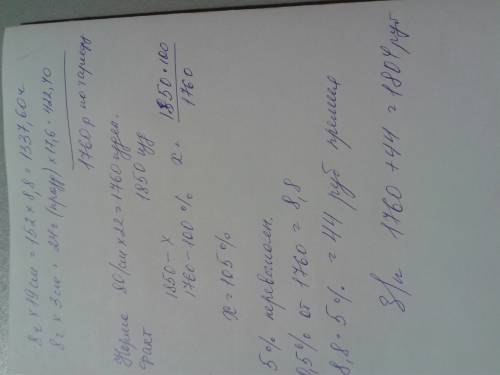 8ч х 19 см = 152 х 8,8 = 1337,60ч
8ч х 3 см = 24ч (празд) х 17,6 = 422,40
1760 р по тарифу
Норма 80/см х 22 = 1760 издел.
Факт 1850 изд
1850 - х
1760 - 100% х = 1850·100 / 1760
х = 105%
5% перевыполн.
0,5% от 1760 = 8,8
8,8·5% = 44 руб премия
З/п 1760 + 44 = 1804 руб